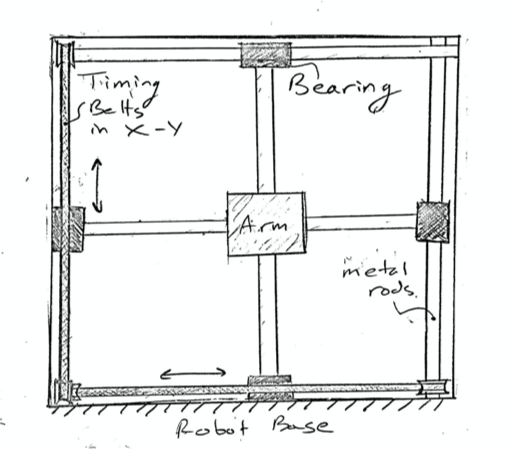 Timing
Belts
in X-Y
Bearing
Arm
metal
rods.
Robot Base